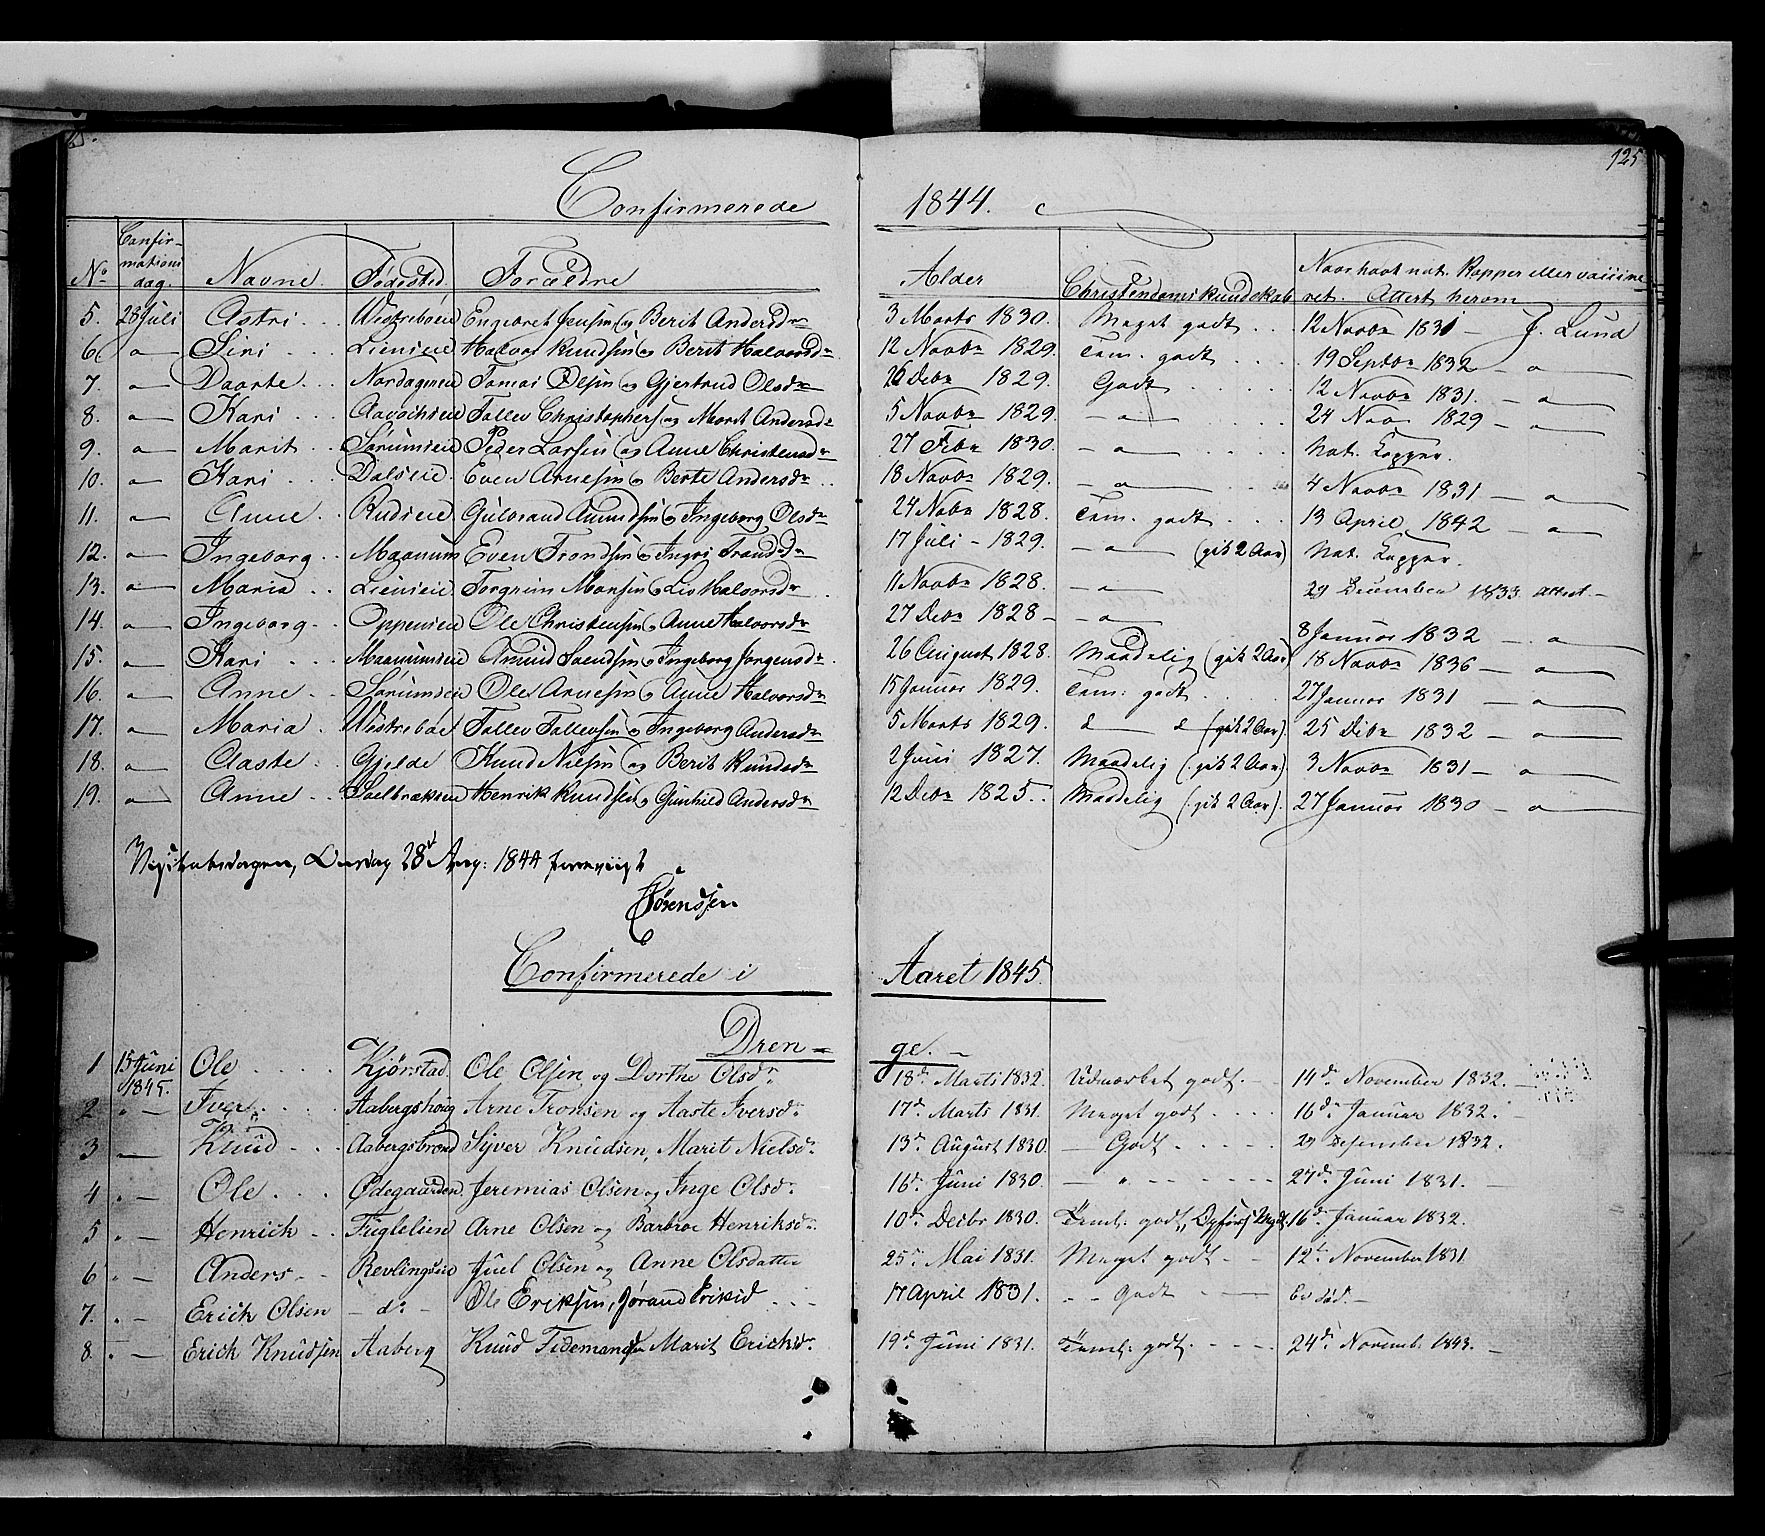 125
Confirmerede 1844.
No Confirmations dag. Navne Fødested. Forældre Alder Christendomskundskab Naar havt nat. Kopper eller vaccineret. Attest herom
5. 28 Juli Astri Westreboeie Engebret Jensen og Berit Andersdr 3 Marts 1830. Meget godt 12 Novbr 1831 - J. Lund
6 " Siri Lieneie Halvor Knudsen og Berit Halvorsdr 12 Novbr 1829. Tem. godt 19 Septbr 1832 - "
7. " Daarte Nordageneie Tomas Olsen og Gjertrud Olsdr 26 Debr 1829. Godt 12 Novbr 1831. - "
8. " Kari Tallev Christophers og Marit Andersdr 5 Novbr 1829 - " 24 Nov 1829 - "
9. " Marit Sørumseie Peder Larsen og Anne Christensdr 27 Febr 1830. - " Nat. Kopper.
10. " Kari Dalseie Even Arnesen og Berte Andersdr 18 Novbr 1829. - " 4 Novbr 1831 - "
11. " Anne Rudseie Gulbrand Amundsen og Ingeborg Olsdr 24 Nobr 1828. Tem. godt 13 April 1842 - "
12. " Ingeborg Maanum Even Trondsen og Ingri Trondsdr 17 Juli - 1829. - " (gik 2 Aar) Nat. Kopper.
13. " Maria Lieneie Torgrim Monsen og Lis Halvorsdr 11 Novbr 1828. - " 29 December 1833 attest -
14. " Ingeborg Oppeneie Ole Christensen og Anne Halvorsdr 27 Debr 1828 - " 8 Januar 1832 - "
15. " Kari Maanumseie Amund Svendsen og Ingeborg Jørgensdr 26 August 1828. Maadelig (gik 2 Aar) 18 Novbr 1836 - "
16. " Anne Sørumseie Ole Arnesen og Anne Halvorsdr 15 Januar 1829. Tem: godt 27 Januar 1831 - "
17. " Maria Westreboe Tallev Tallevsen og Ingeborg Andersdr 5 Marts 1829. d d (gik 2 Aar). 25 Debr 1832 - "
18. " Aaste Gjelde Knud Nielsen og Berit Knudsdr 2 Juni 1827. Maadelig (gik 2 Aar) 3 Novbr 1831 - "
19. " Anne Henrik Knudsen og Gunhild Andersdr 12 Debr 1825. Maadelig (gik 2 Aar). 27 Januar 1830 - "
Onsdag 28d Aug: 1844
Sørensen
Confirmerede i Aaret 1845.
Drenge. -
1 15 Juni 1845. Ole Kjørstad. Ole Olsen og Dorthe Olsdr 18d Marts 1832. Udmærket godt 14d November 1832.
2 " - Iver Aabergshoug Arne Tronsen og Aaste Iversdr 17d Marts 1831. Meget godt 16d Januar 1832.
3 - Knud Aabergsbrænd Syver Knudsen, Marit Nielsdr 13d August 1830. - Godt 29 Desember 1832.
4 " - Ole Ødegaarden Jeremias Olsen og Inge Olsdr 16d Juni 1830. - " - 24d Juni 1831. -
5 " - Henrich Fuglelien Arne Olsen og Barbroe Henriksdr 10d Decbr 1830. Teml: godt, 16d Januar 1832.
6 " - Anders Revlingseie Juel Olsen og Anne Olsdatter 25d Mai 1831. Meget godt 12d November 1831
7. " - Erick Olsen - do - Ole Eriksen, Jørand Eriksd 17 April 1831. Godt
8. " - Erick Knudsen Aaberg Knud Tidemandsen Marit Ericksdr 19d Juni 1831. Teml: godt. 24d Novemb. 1843. -